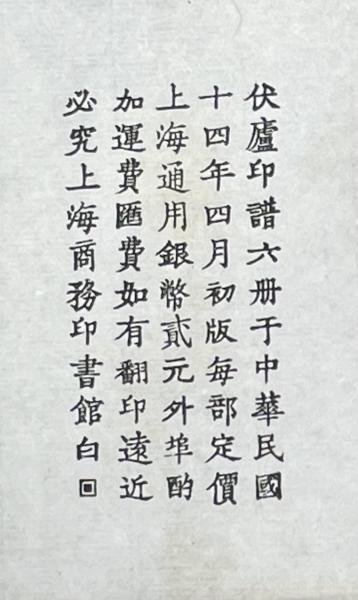 伏廬印譜六册于中華民國
十四年四月初版每部定價
上海通用銀幣貳元外埠酌
加運費匯費如有翻印遠近
必究上海商務印書館白回